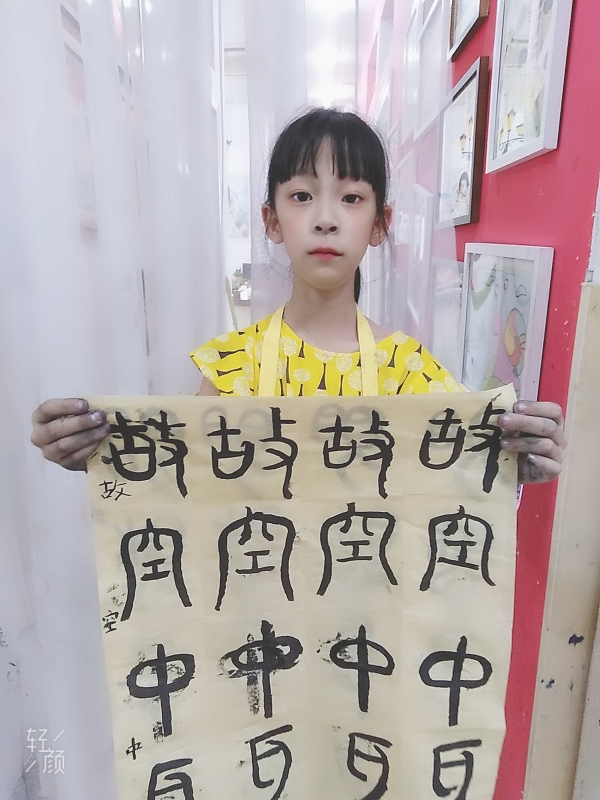 故 故 故 故
故
空 空 空 空
空
中 中 中 中
中
轻颜